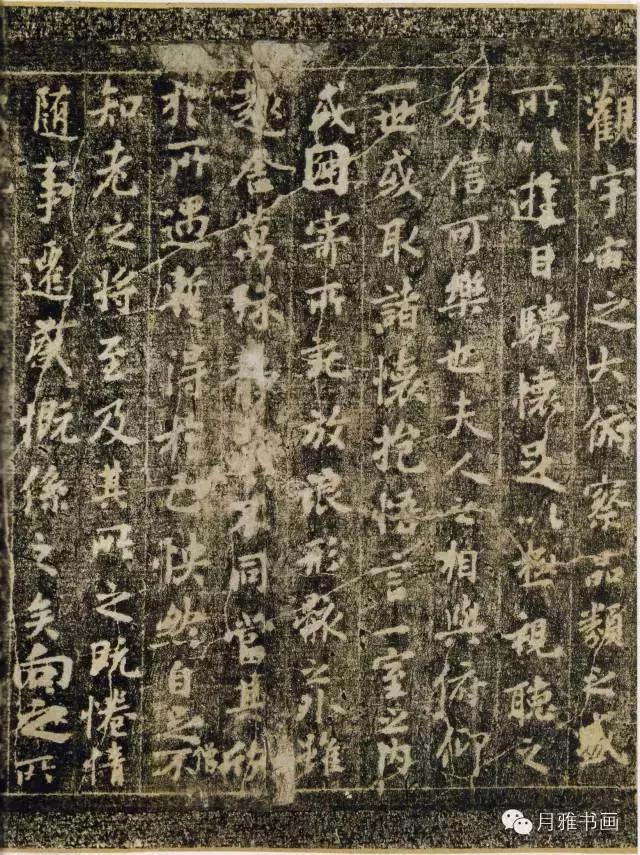 觀宇宙之大俯察品類之盛
所以遊目騁懷足以極視聽之
娛信可樂也夫人之相與俯仰
一世或取諸懷抱悟言一室之內
或因寄所託放浪形骸之外雖
趣舍萬殊靜躁不同當其欣
於所遇暫得於己怏然自足不
僧
知老之將至及其所之既惓情
隨事遷感慨係之矣向之所
月雅书画